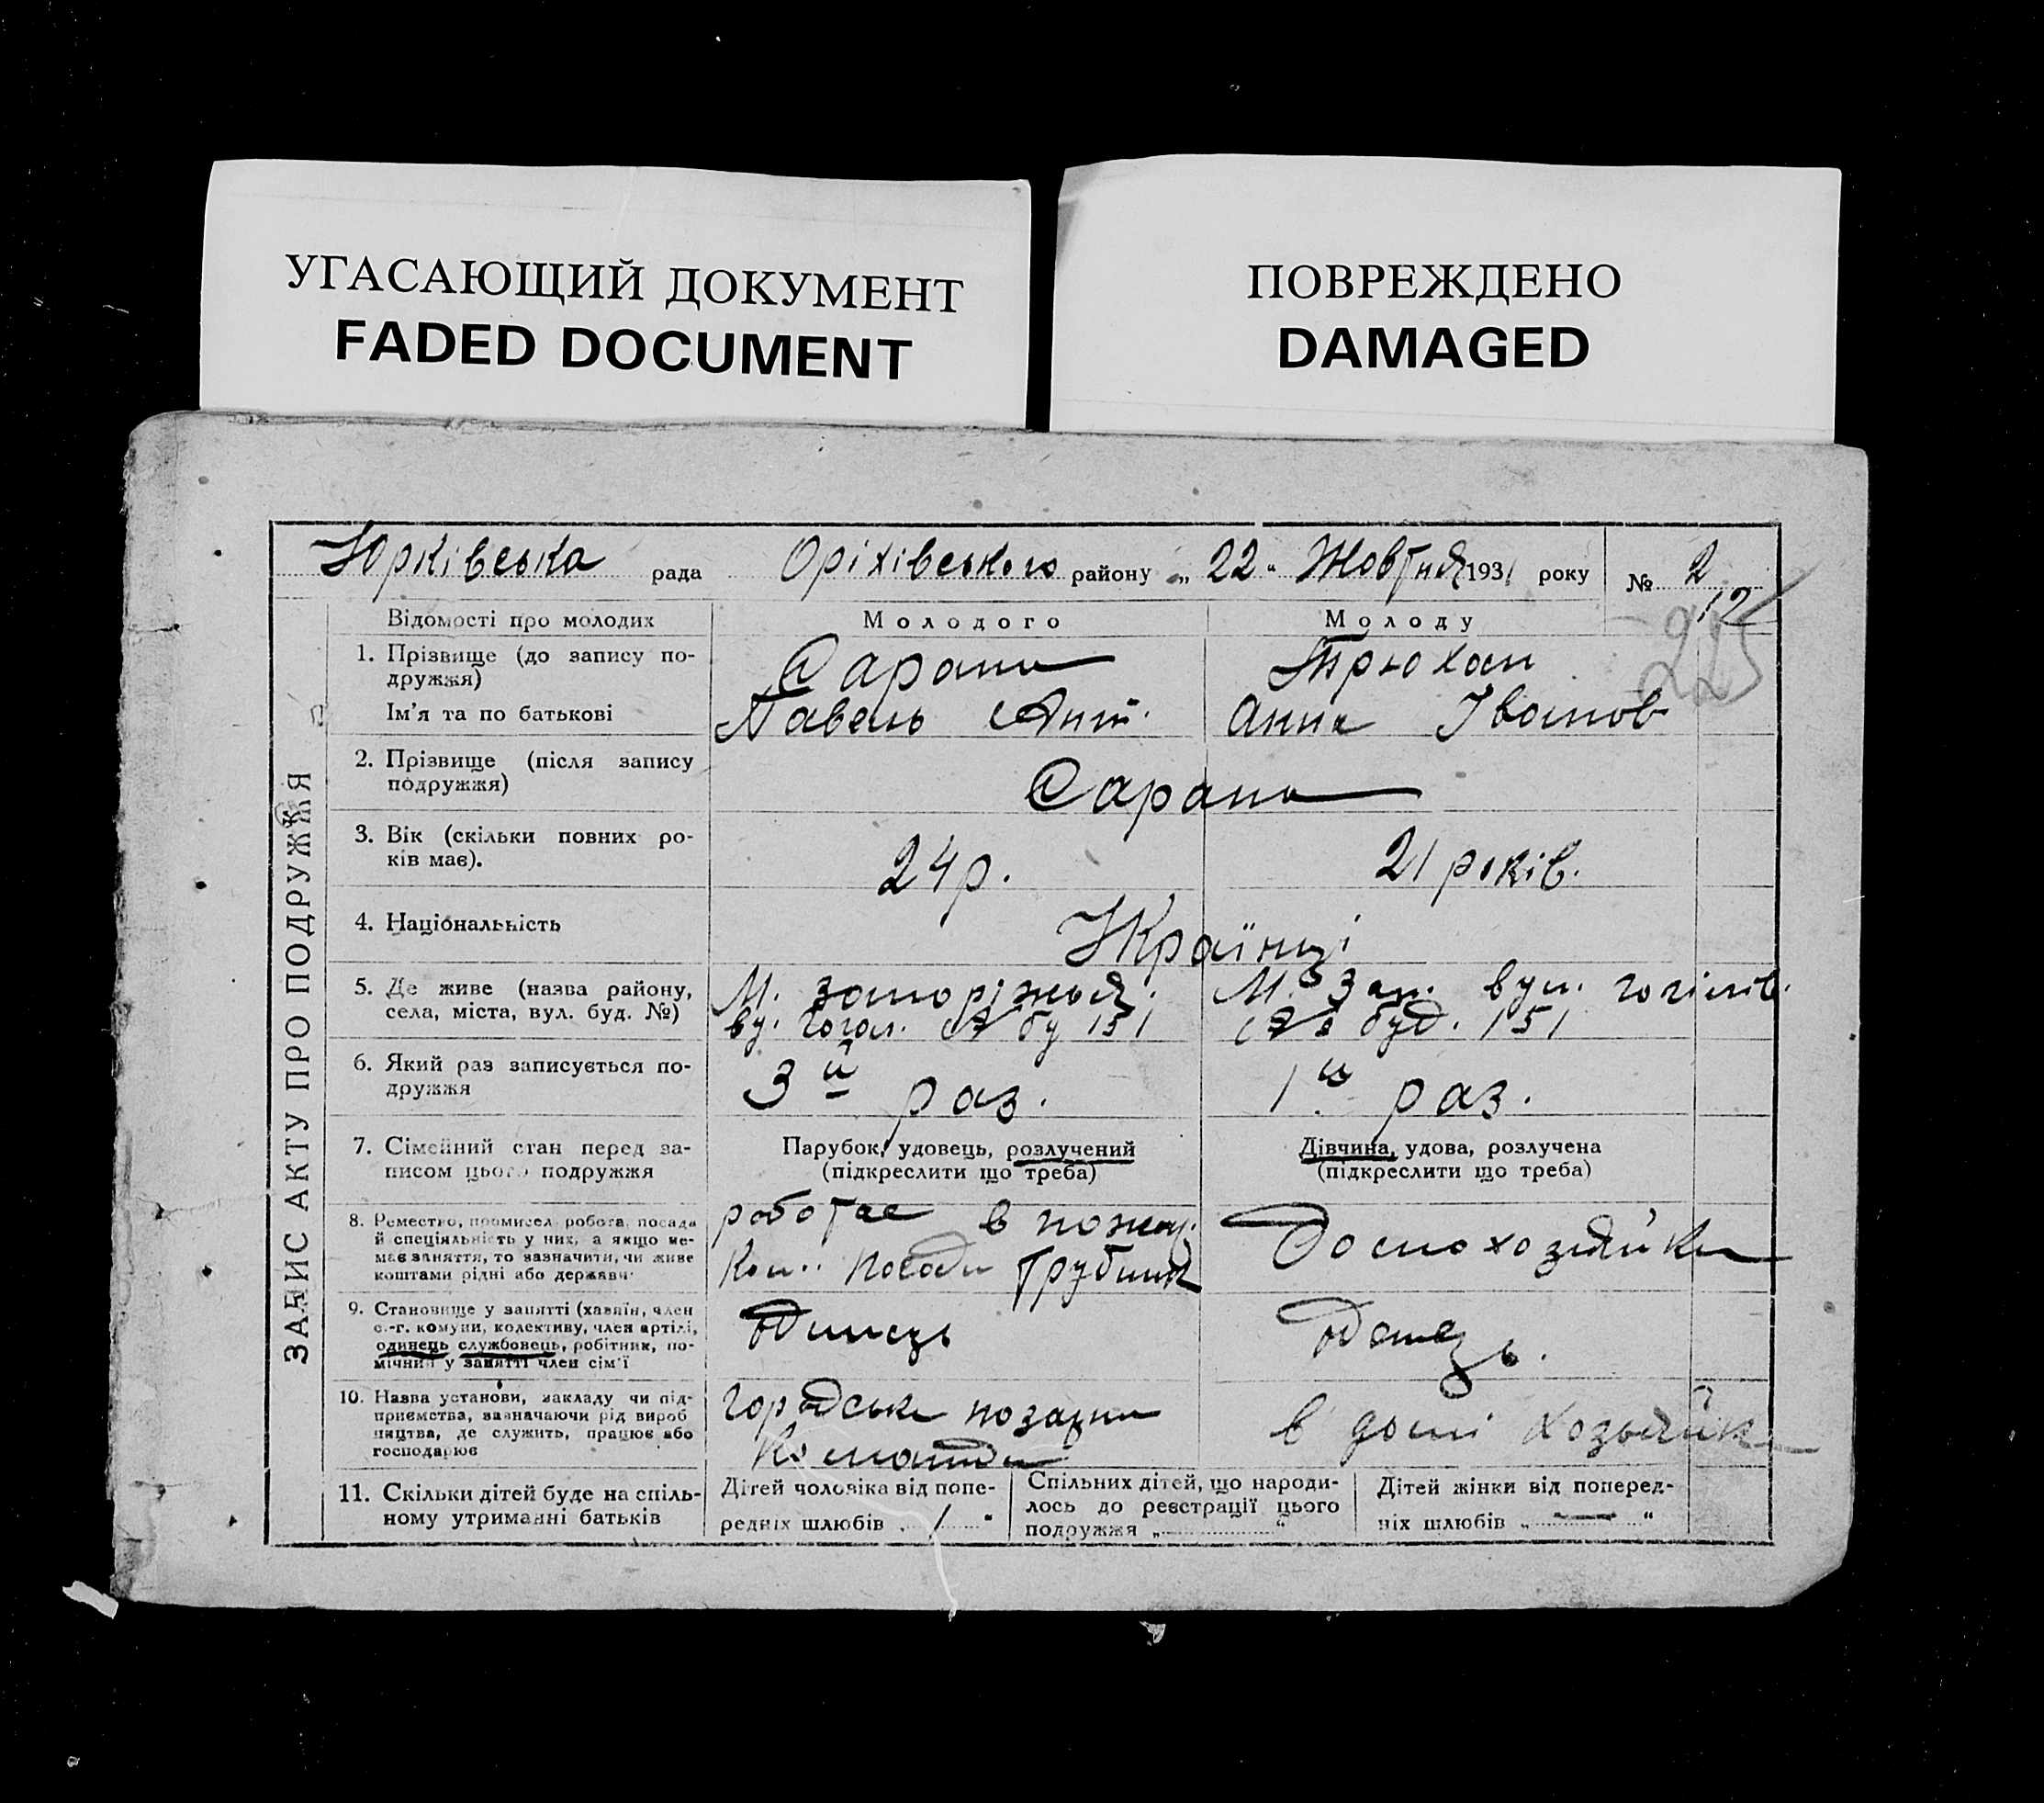 УГАСАЮЩИЙ ДОКУМЕНТ
FADED DOCUMENT
ПОВРЕЖДЕНО
DAMAGED
Юрківська рада Оріхівського району „ 22 “ Жовтня 1931 року № 2
12
225
ЗАПИС АКТУ ПРО ПОДРУЖЖЯ
Відомості про молодих Молодого Молоду
1. Прізвище (до запису по-
дружжя) Сарана Трюхан
Ім'я та по батькові Павель Ант. Анна Іванов
2. Прізвище (після запису
подружжя) Сарана
3. Вік (скільки повних ро-
ків має). 24 р. 21 років.
4. Національність Українці
5. Де живе (назва району,
села, міста, вул. буд. №)
М. Запоріжья.
ву. Гогол. бу 151
М. Зап. вул. гогілів.
буд. 151
6. Який раз записується по-
дружжя 3й раз. 1й раз.
7. Сімейний стан перед за-
писом цього подружжя
Парубок, удовець, розлучений
(підкреслити що треба)
Дівчина, удова, розлучена
(підкреслити що треба)
8. Ремество, промисел робота, посада
й спеціяльність у них, а якщо не-
має заняття, то зазначити, чи живе
коштами рідні або держави
роботає в пожар.
Ком. посади трубник
Домохозяйка
9. Становище у занятті (хазяїн, член
с.-г. комуни, колективу, член артілі,
одинець службовець, робітник, по-
мічний у занятті член сім'ї
одинець
10. Назва установи, закладу чи під-
приємства, зазначаючи рід вироб
ництва, де служить, працює або
господарює
городська
команда
в домі хозьяйка
11. Скільки дітей буде на спіль-
ному утриманні батьків
Дітей чоловіка від попе-
редніх шлюбів „ 1 “
Спільних дітей, що народи-
лось до реєстрації цього
подружжя „ “
Дітей жінки від поперед-
ніх шлюбів „ — “